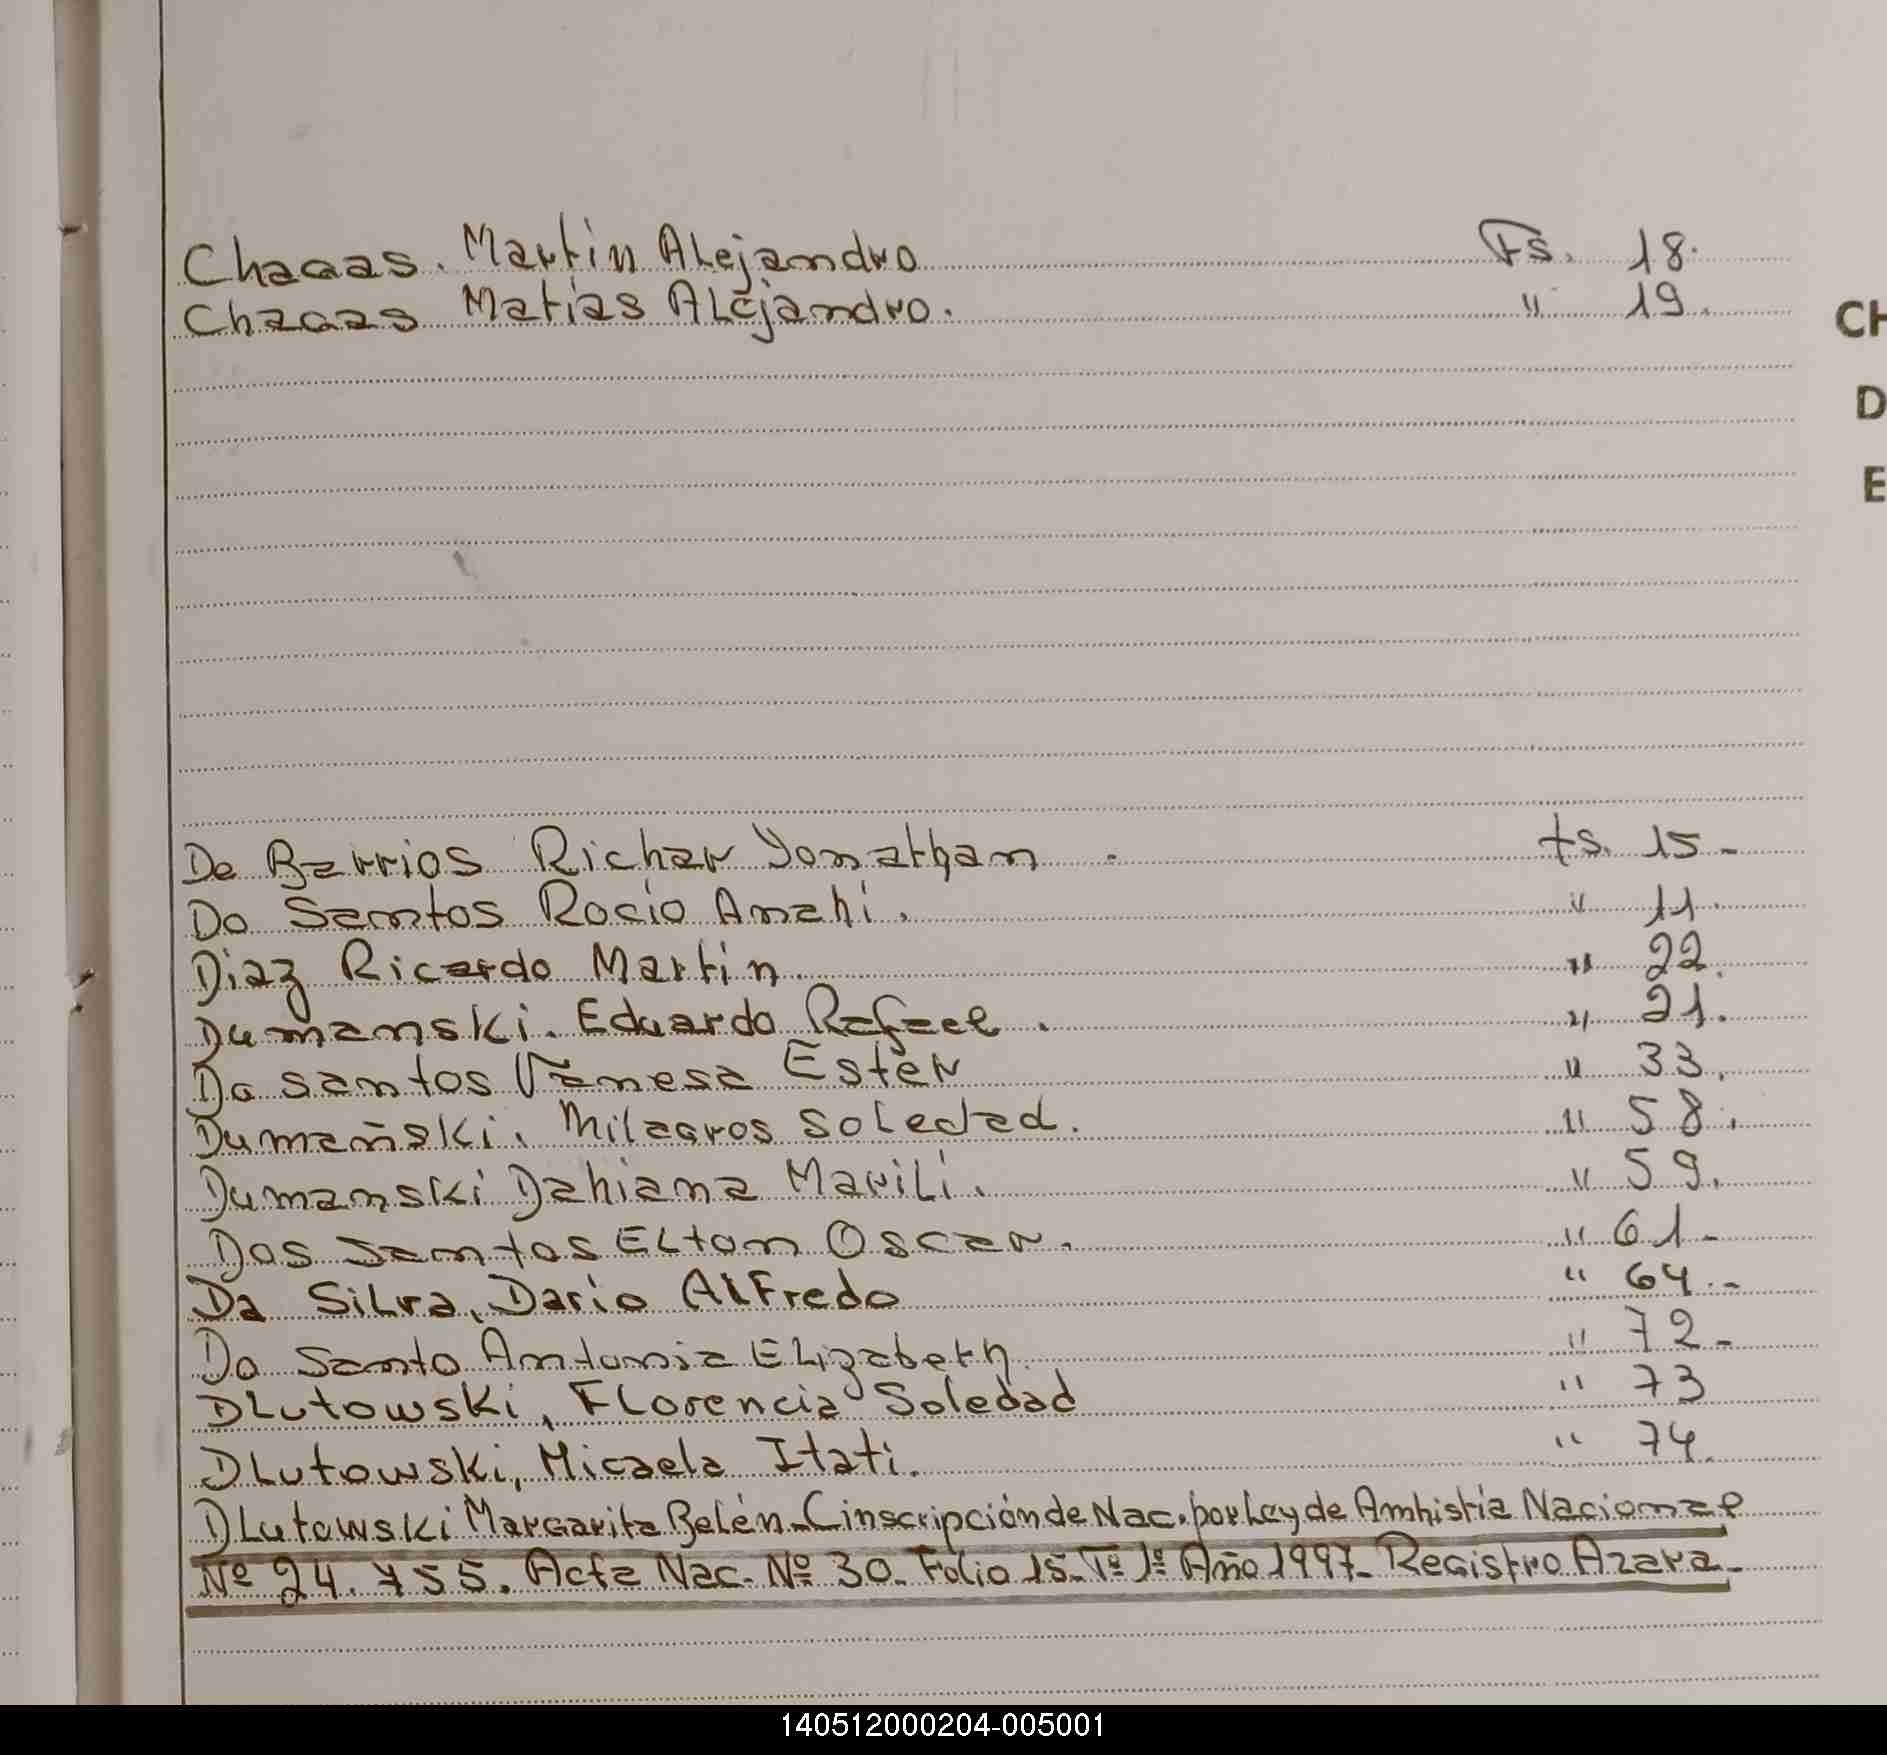 Chagas. Martin Alejandro Fs. 18.
Chagas Matias Alejandro. " 19.
CH
D
E
De Barrios Richar Yonatham. fs. 15-
Do Santos Rocio Anahi. " 11.
Diaz Ricardo Martin. " 22.
Dumanski. Eduardo Rafael. " 21.
Do santos Vanesa Ester " 33.
Dumañski. Milagros Soledad. " 58.
Dumanski Dahiana Marili. " 59.
Dos Santos Elton Oscar. " 61-
Da Silva, Dario Alfredo " 64.-
Do Santo Antonia Elizabeth " 72-
Dlutowski, Florencia Soledad " 73
Dlutowski, Micaela Itati. " 74.
Dlutowski Margarita Belén-Cinscripción de Nac. por Ley de Amnistia Nacional
Nº 24.755. Acta Nac. Nº 30. Folio 15-Tº 1º Año 1997- Registro Azara-
140512000204-005001